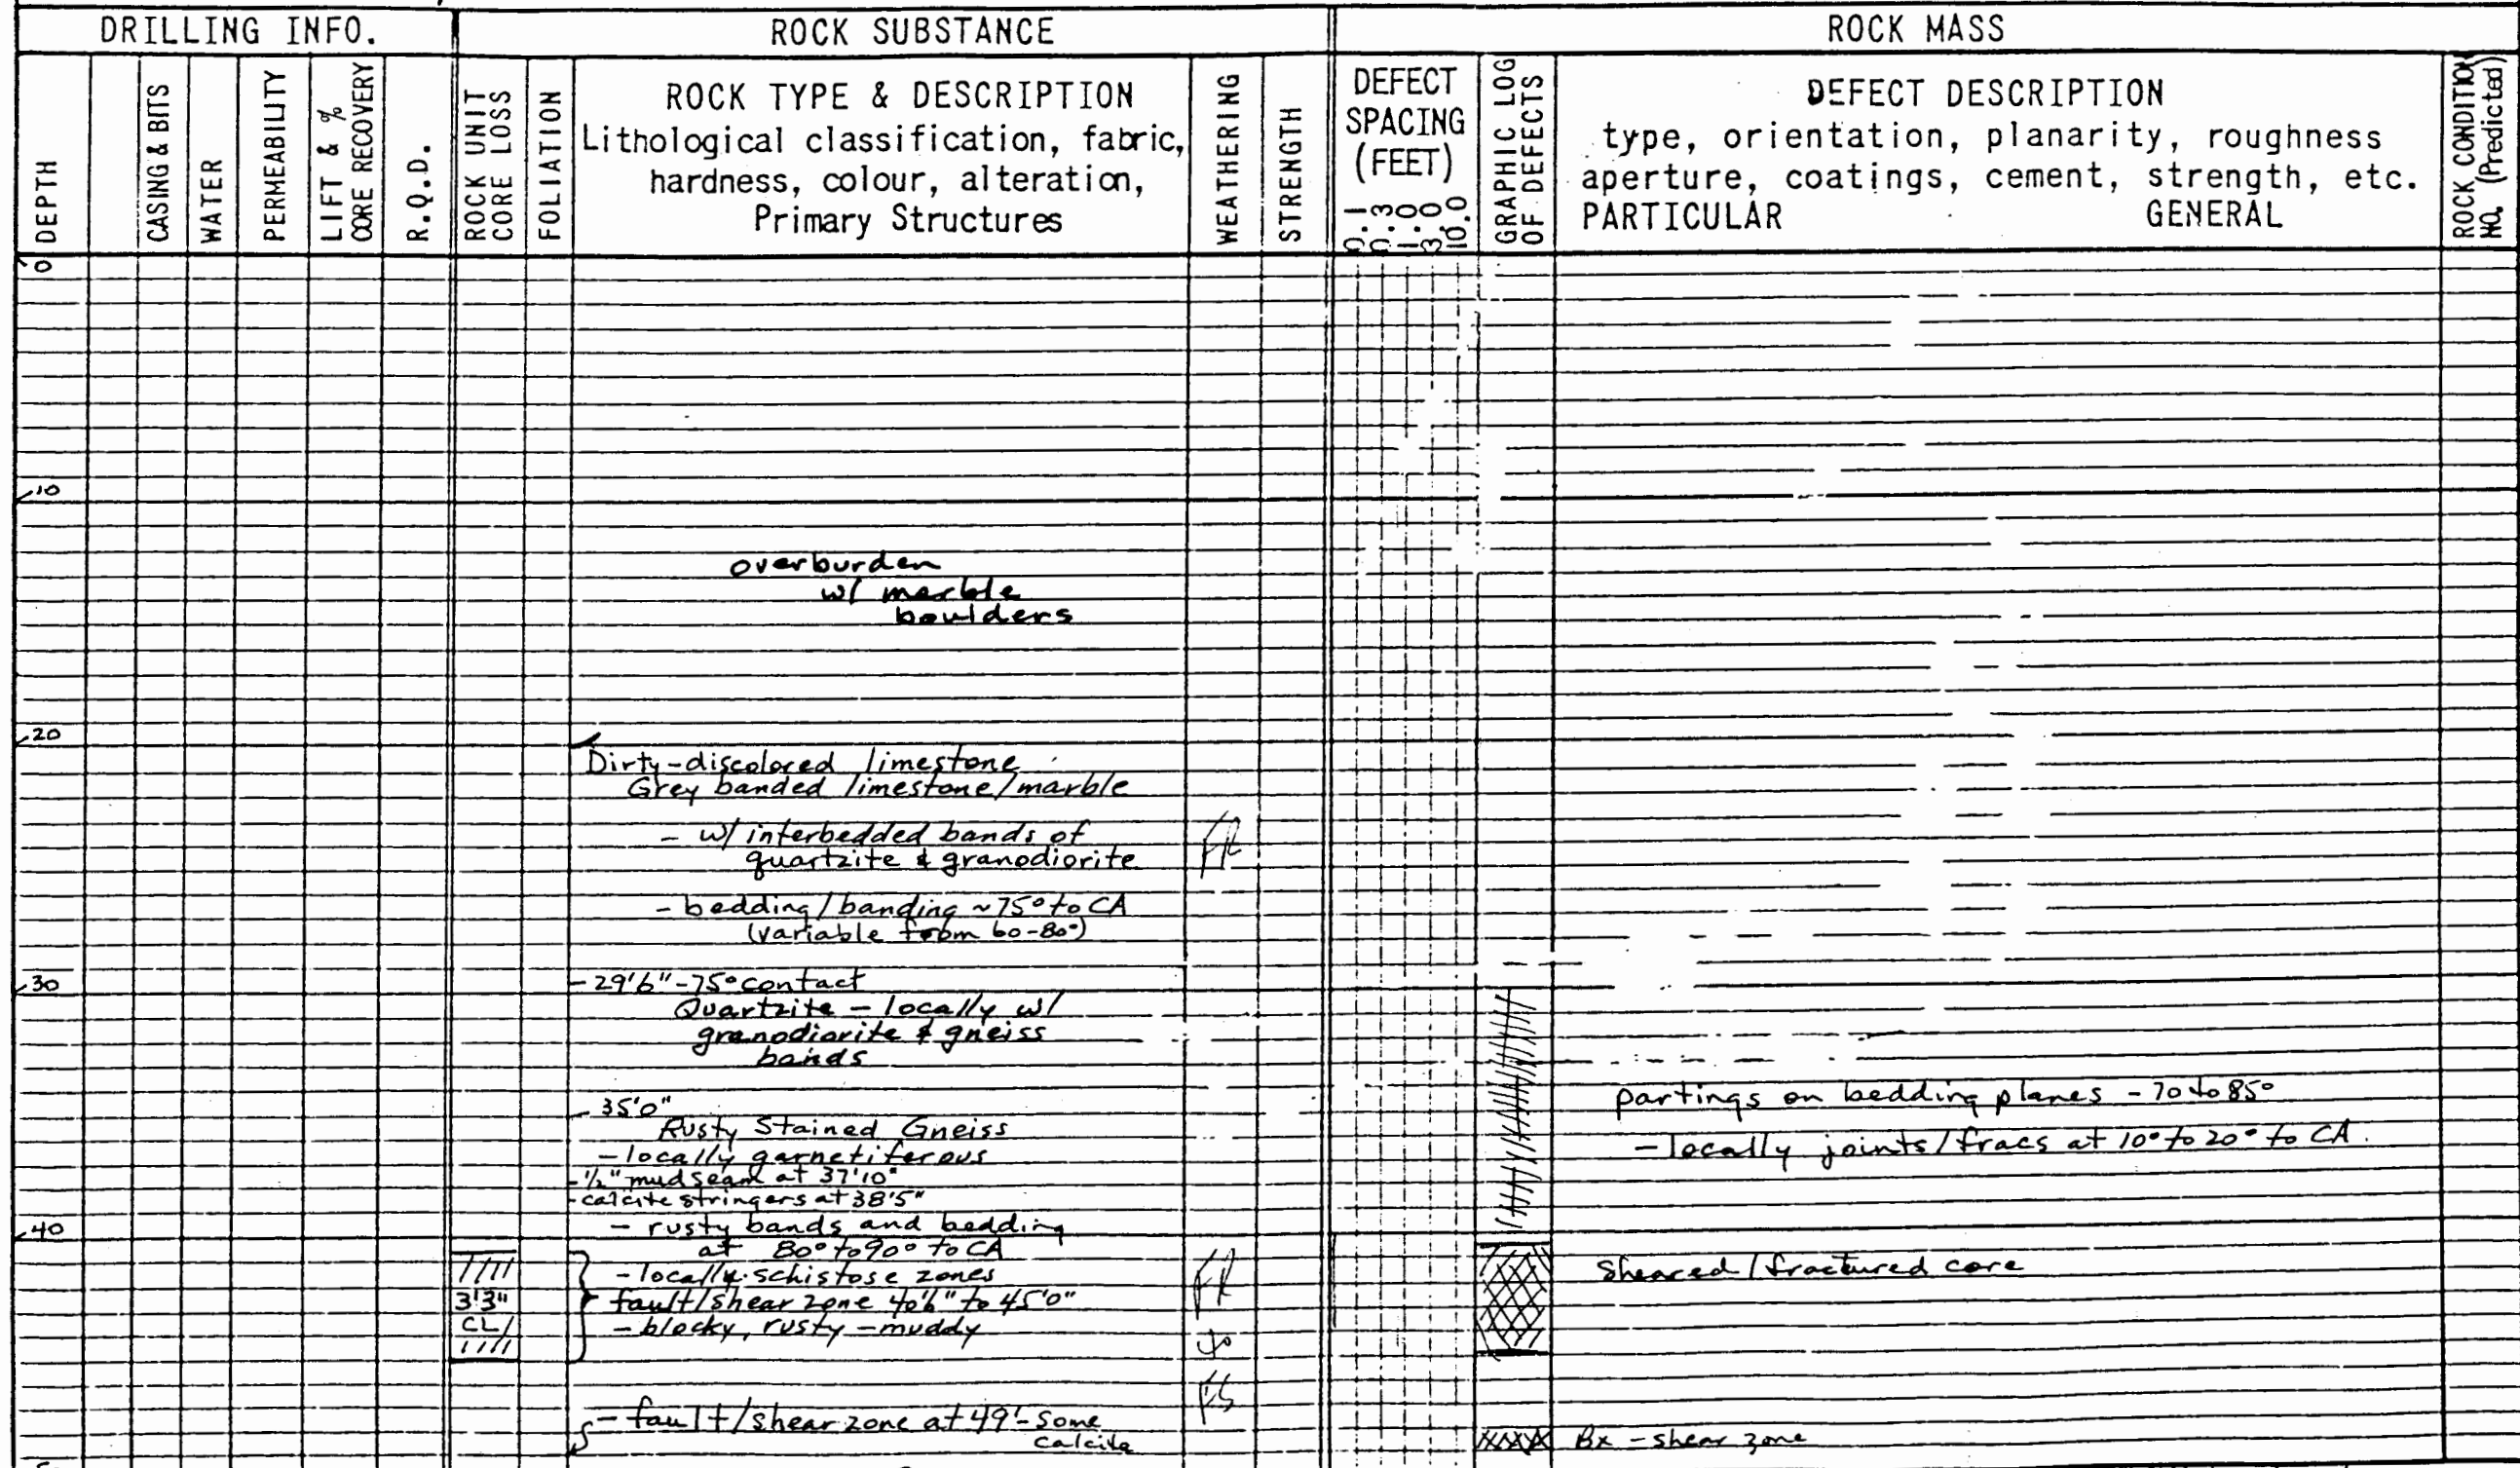 DRILLING INFO.
ROCK SUBSTANCE
ROCK MASS
DEPTH
CASING & BITS
WATER
PERMEABILITY
LIFT & %
CORE RECOVERY
R.Q.D.
ROCK UNIT
CORE LOSS
FOLIATION
ROCK TYPE & DESCRIPTION
Lithological classification, fabric,
hardness, colour, alteration,
Primary Structures
WEATHERING
STRENGTH
DEFECT
SPACING
(FEET)
0.1
0.3
1.0
3.0
10.0
GRAPHIC LOG
OF DEFECTS
DEFECT DESCRIPTION
type, orientation, planarity, roughness
aperture, coatings, cement, strength, etc.
PARTICULAR GENERAL
ROCK CONDITION
NO. (Predicted)
0
10
overburden
w/ marble
boulders
20
Dirty-discolored limestone
Grey banded limestone/marble
- w/ interbedded bands of
quartzite & granodiorite
FR
- bedding/banding ~75° to CA
(variable from 60-80°)
30
- 29'6" - 75° contact
Quartzite - locally w/
granodiorite & gneiss
bands
- 35'0"
Rusty Stained Gneiss
- locally garnetiferous
- 1/2" mud seam at 37'10"
- calcite stringers at 38'5"
partings on bedding planes - 70 to 85°
- locally joints/fracs at 10° to 20° to CA.
40
- rusty bands and bedding
at 80° to 90° to CA
- locally schistose zones
fault/shear zone 40'6" to 45'0"
- blocky, rusty - muddy
3'3"
CL
FR
to
FS
sheared/fractured core
- fault/shear zone at 49' - some
calcite
Bx - shear zone